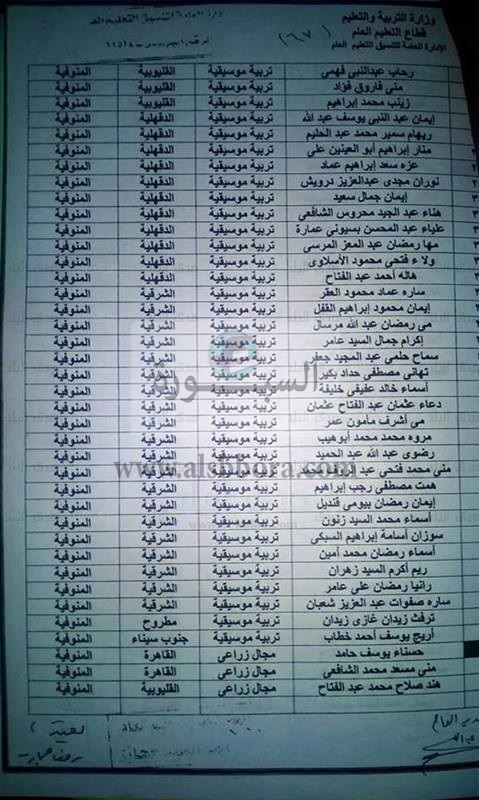 وزارة التربية والتعليم
قطاع التعليم العام
الإدارة العامة لتنسيق التعليم العام
(٦٧)
رحاب عبدالنبي فهمي تربية موسيقية القليوبية المنوفية
منى فاروق فؤاد تربية موسيقية القليوبية المنوفية
زينب محمد إبراهيم تربية موسيقية القليوبية المنوفية
إيمان عبد النبي يوسف عبد الله تربية موسيقية الدقهلية المنوفية
ريهام سمير محمد عبد الحليم تربية موسيقية الدقهلية المنوفية
منار إبراهيم أبو العينين علي تربية موسيقية الدقهلية المنوفية
عزه سعد إبراهيم عماد تربية موسيقية الدقهلية المنوفية
نوران مجدى عبدالعزيز درويش تربية موسيقية الدقهلية المنوفية
إيمان جمال سعيد تربية موسيقية الدقهلية المنوفية
هناء عبد الجيد محروس الشافعي تربية موسيقية الدقهلية المنوفية
علياء عبد المحسن بسيوني عمارة تربية موسيقية الدقهلية المنوفية
مها رمضان عبد المعز المرسي تربية موسيقية الدقهلية المنوفية
ولاء فتحي محمود الأسلاوى تربية موسيقية الدقهلية المنوفية
هاله أحمد عبد الفتاح تربية موسيقية الدقهلية المنوفية
ساره عماد محمود العقر تربية موسيقية الشرقية المنوفية
إيمان محمود إبراهيم القفل تربية موسيقية الشرقية المنوفية
مى رمضان عبد الله مرسال تربية موسيقية الشرقية المنوفية
إكرام جمال السيد عامر تربية موسيقية الشرقية المنوفية
سماح حلمى عبد المجيد جعفر تربية موسيقية الشرقية المنوفية
تهاني مصطفى حداد بكير تربية موسيقية الشرقية المنوفية
أسماء خالد عفيفي خليفة تربية موسيقية الشرقية المنوفية
دعاء عثمان عبد الفتاح عثمان تربية موسيقية الشرقية المنوفية
مى أشرف مأمون عمر تربية موسيقية الشرقية المنوفية
مروه محمد محمد أبوهيب تربية موسيقية الشرقية المنوفية
رضوى عبد الله عبد الحميد تربية موسيقية الشرقية المنوفية
منى محمد فتحي عبد تربية موسيقية الشرقية المنوفية
همت مصطفى رجب إبراهيم تربية موسيقية الشرقية المنوفية
إيمان رمضان بيومى قنديل تربية موسيقية الشرقية المنوفية
أسماء محمد السيد زنون تربية موسيقية الشرقية المنوفية
سوزان أسامة إبراهيم السبكى تربية موسيقية الشرقية المنوفية
أسماء رمضان محمد أمين تربية موسيقية الشرقية المنوفية
ريم أكرم السيد زهران تربية موسيقية الشرقية المنوفية
رانيا رمضان علي عامر تربية موسيقية الشرقية المنوفية
ساره صفوات عبد العزيز شعبان تربية موسيقية الشرقية المنوفية
ترفت زيدان غازى زيدان تربية موسيقية مطروح المنوفية
أريج يوسف أحمد خطاب تربية موسيقية جنوب سيناء المنوفية
حسناء يوسف حامد مجال زراعي القاهرة المنوفية
منى مسعد محمد الشافعي مجال زراعي القاهرة المنوفية
هند صلاح محمد عبد الفتاح مجال زراعي القليوبية المنوفية
السبورة
www.alsbbora.com